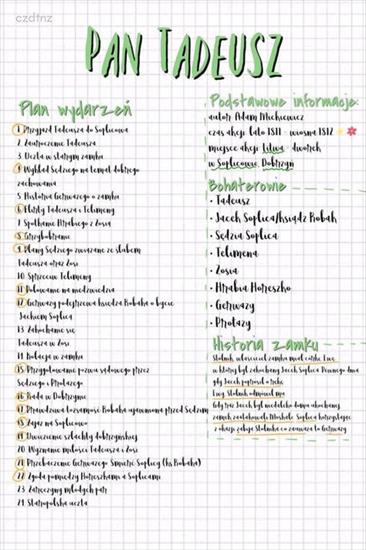 czdtnz
PAN TADEUSZ
Plan wydarzeń
1. Przyjazd Tadeusza do Soplicowa
2. Zauroczenie Tadeusza
3. Uczta w starym zamku
4. Wykład Sędziego na temat dobrego
zachowania
5. Historia Gerwazego o zamku
6. Flirty Tadeusza z Telimeną
7. Spotkanie Hrabiego z Zosią
8. Grzybobranie
9. Plany Sędziego związane ze ślubem
Tadeusza oraz Zosi
10. Sprzeciw Telimeny
11. Polowanie na niedźwiedzia
12. Gerwazy podejrzewa księdza Robaka o bycie
Jackiem Soplicą
13. Zakochanie się
Tadeusza w Zosi
14. Kolacja w zamku
15. Przygotowanie pozwu sądowego przez
Sędziego i Protazego
16. Rada w Dobrzynie
17. Prawdziwa tożsamość Robaka ujawniona przed Sędzim
18. Zajazd na Soplicowo
19. Uwięzienie szlachty dobrzyńskiej
20. Wyznanie miłości Tadeusza i Zosi
21. Przebaczenie Gerwazego Śmierć Soplicy (ks. Robaka)
22. Zgoda pomiędzy Horeszkami a Soplicami
23. Zaręczyny młodych par
24. Staropolska uczta
Podstawowe informacje:
autor: Adam Mickiewicz
czas akcji: lato 1811 - wiosna 1812
miejsce akcji: Litwa - dworek
w Soplicowie, Dobrzyń
Bohaterowie
• Tadeusz
• Jacek Soplica/ksiądz Robak
• Sędzia Soplica
• Telimena
• Zosia
• Hrabia Horeszko
• Gerwazy
• Protazy
Historia zamku
Stolnik, właściciel zamku miał córkę Ewę
w której był zakochany Jacek Soplica. Pewnego dnia
gdy Jacek poprosił o rękę
Ewy, Stolnik odmówił mu
Gdy raz Jacek był niedaleko domu ukochanej
zamek zaatakowali Moskale. Soplica korzystając
z okazji zabija Stolnika co zauważa to Gerwazy